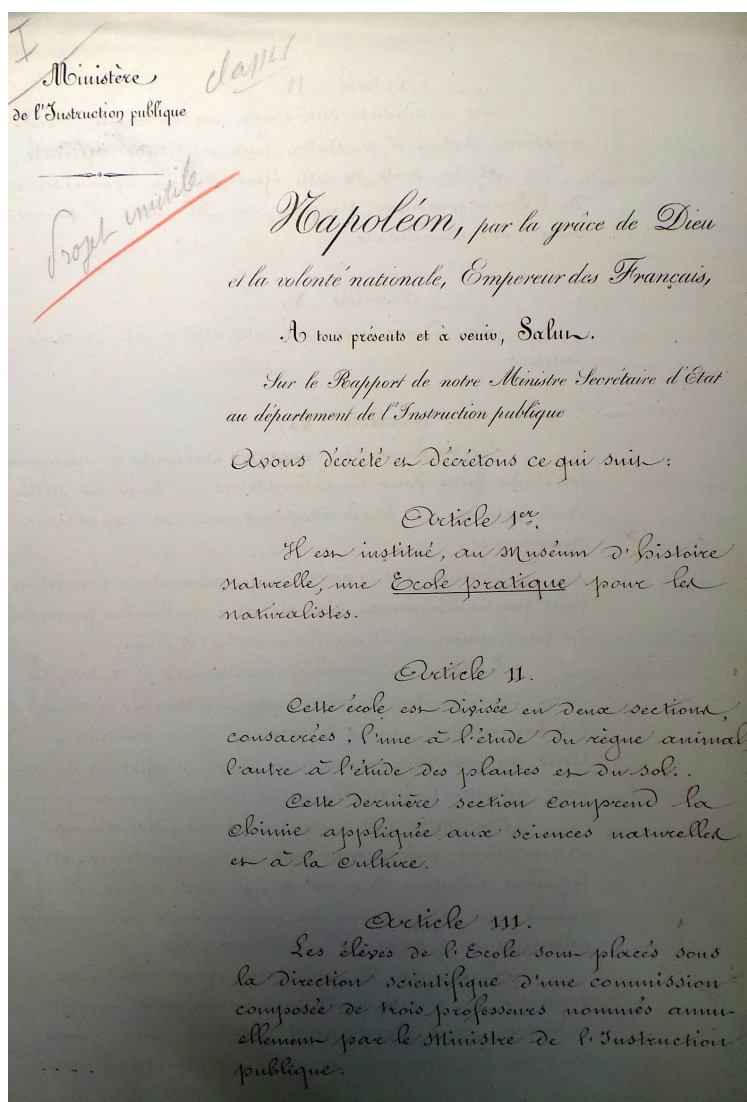 I
classer
Ministère
de l'Instruction publique
Projet inutile
Napoléon, par la grâce de Dieu
et la volonté nationale, Empereur des Français,
A tous présents et à venir, Salut.
Sur le Rapport de notre Ministre Secrétaire d'Etat
au département de l'Instruction publique
Avons décrété et décrétons ce qui suit :
Article 1er.
Il est institué, au Muséum d'histoire
naturelle, une Ecole pratique pour les
naturalistes.
Article II.
Cette école est divisée en deux sections,
consacrées ; l'une à l'étude du règne animal
l'autre à l'étude des plantes et du sol.
Cette dernière section comprend la
chimie appliquée aux sciences naturelles
et à la culture.
Article III.
Les élèves de l'Ecole sont placés sous
la direction scientifique d'une commission
composée de trois professeurs nommés annu-
ellement par le Ministre de l'Instruction
publique.